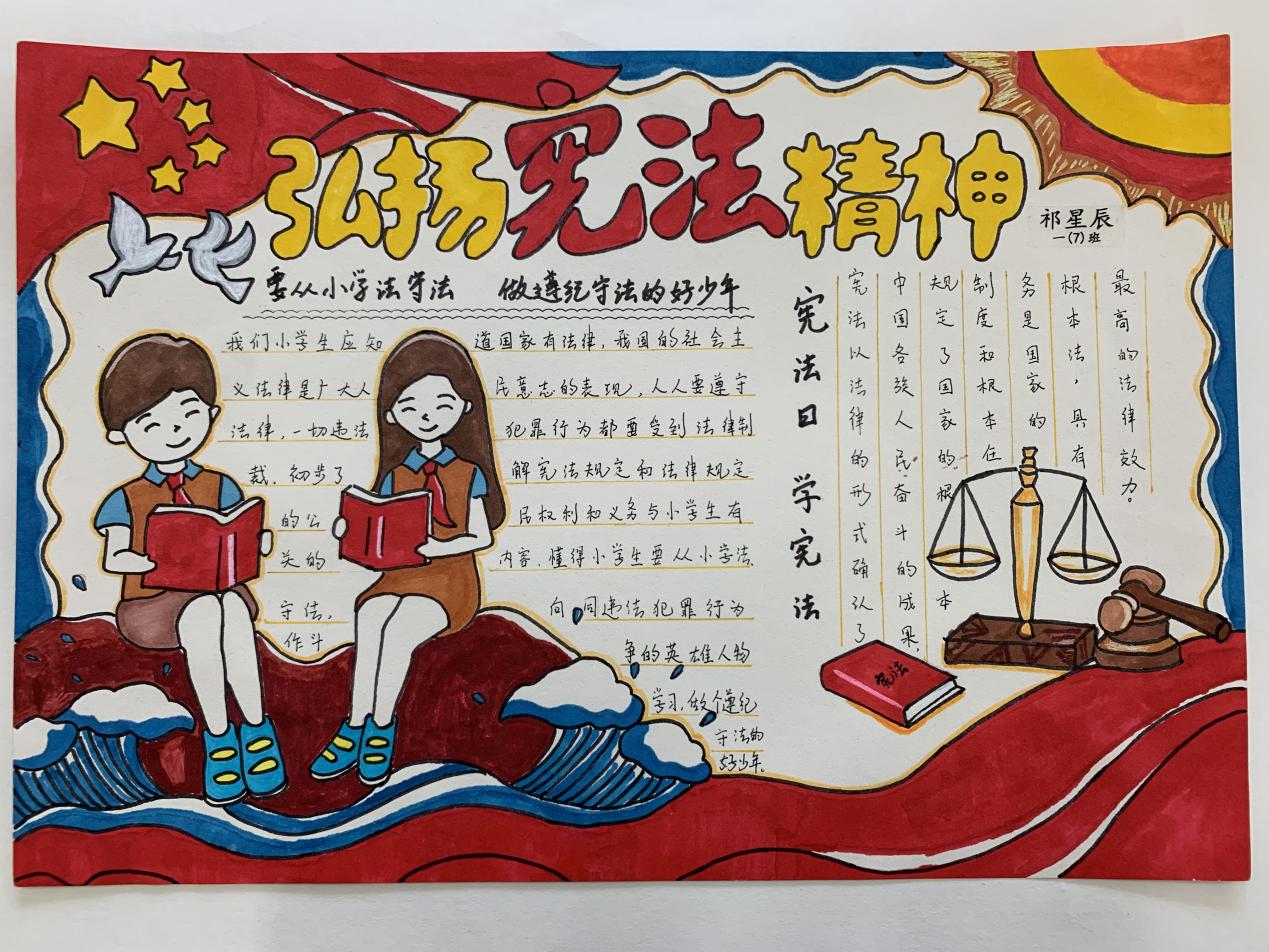 弘扬宪法精神
祁星辰
一(7)班
要从小学法守法 做遵纪守法的好少年
我们小学生应知道国家有法律，我国的社会主
义法律是广大人民意志的表现，人人要遵守
法律，一切违法犯罪行为都要受到法律制
裁．初步了解宪法规定和法律规定
的公民权利和义务与小学生有
关的内容．懂得小学生要从小学法
守法，向同违法犯罪行为
作斗争的英雄人物
学习，做个遵纪
守法的
好少年。
宪法日 学宪法
宪法以法律的形式确认了
中国各族人民奋斗的成果，
规定了国家的根本
制度和根本任
务是国家的
根本法，具有
最高的法律效力。
宪法